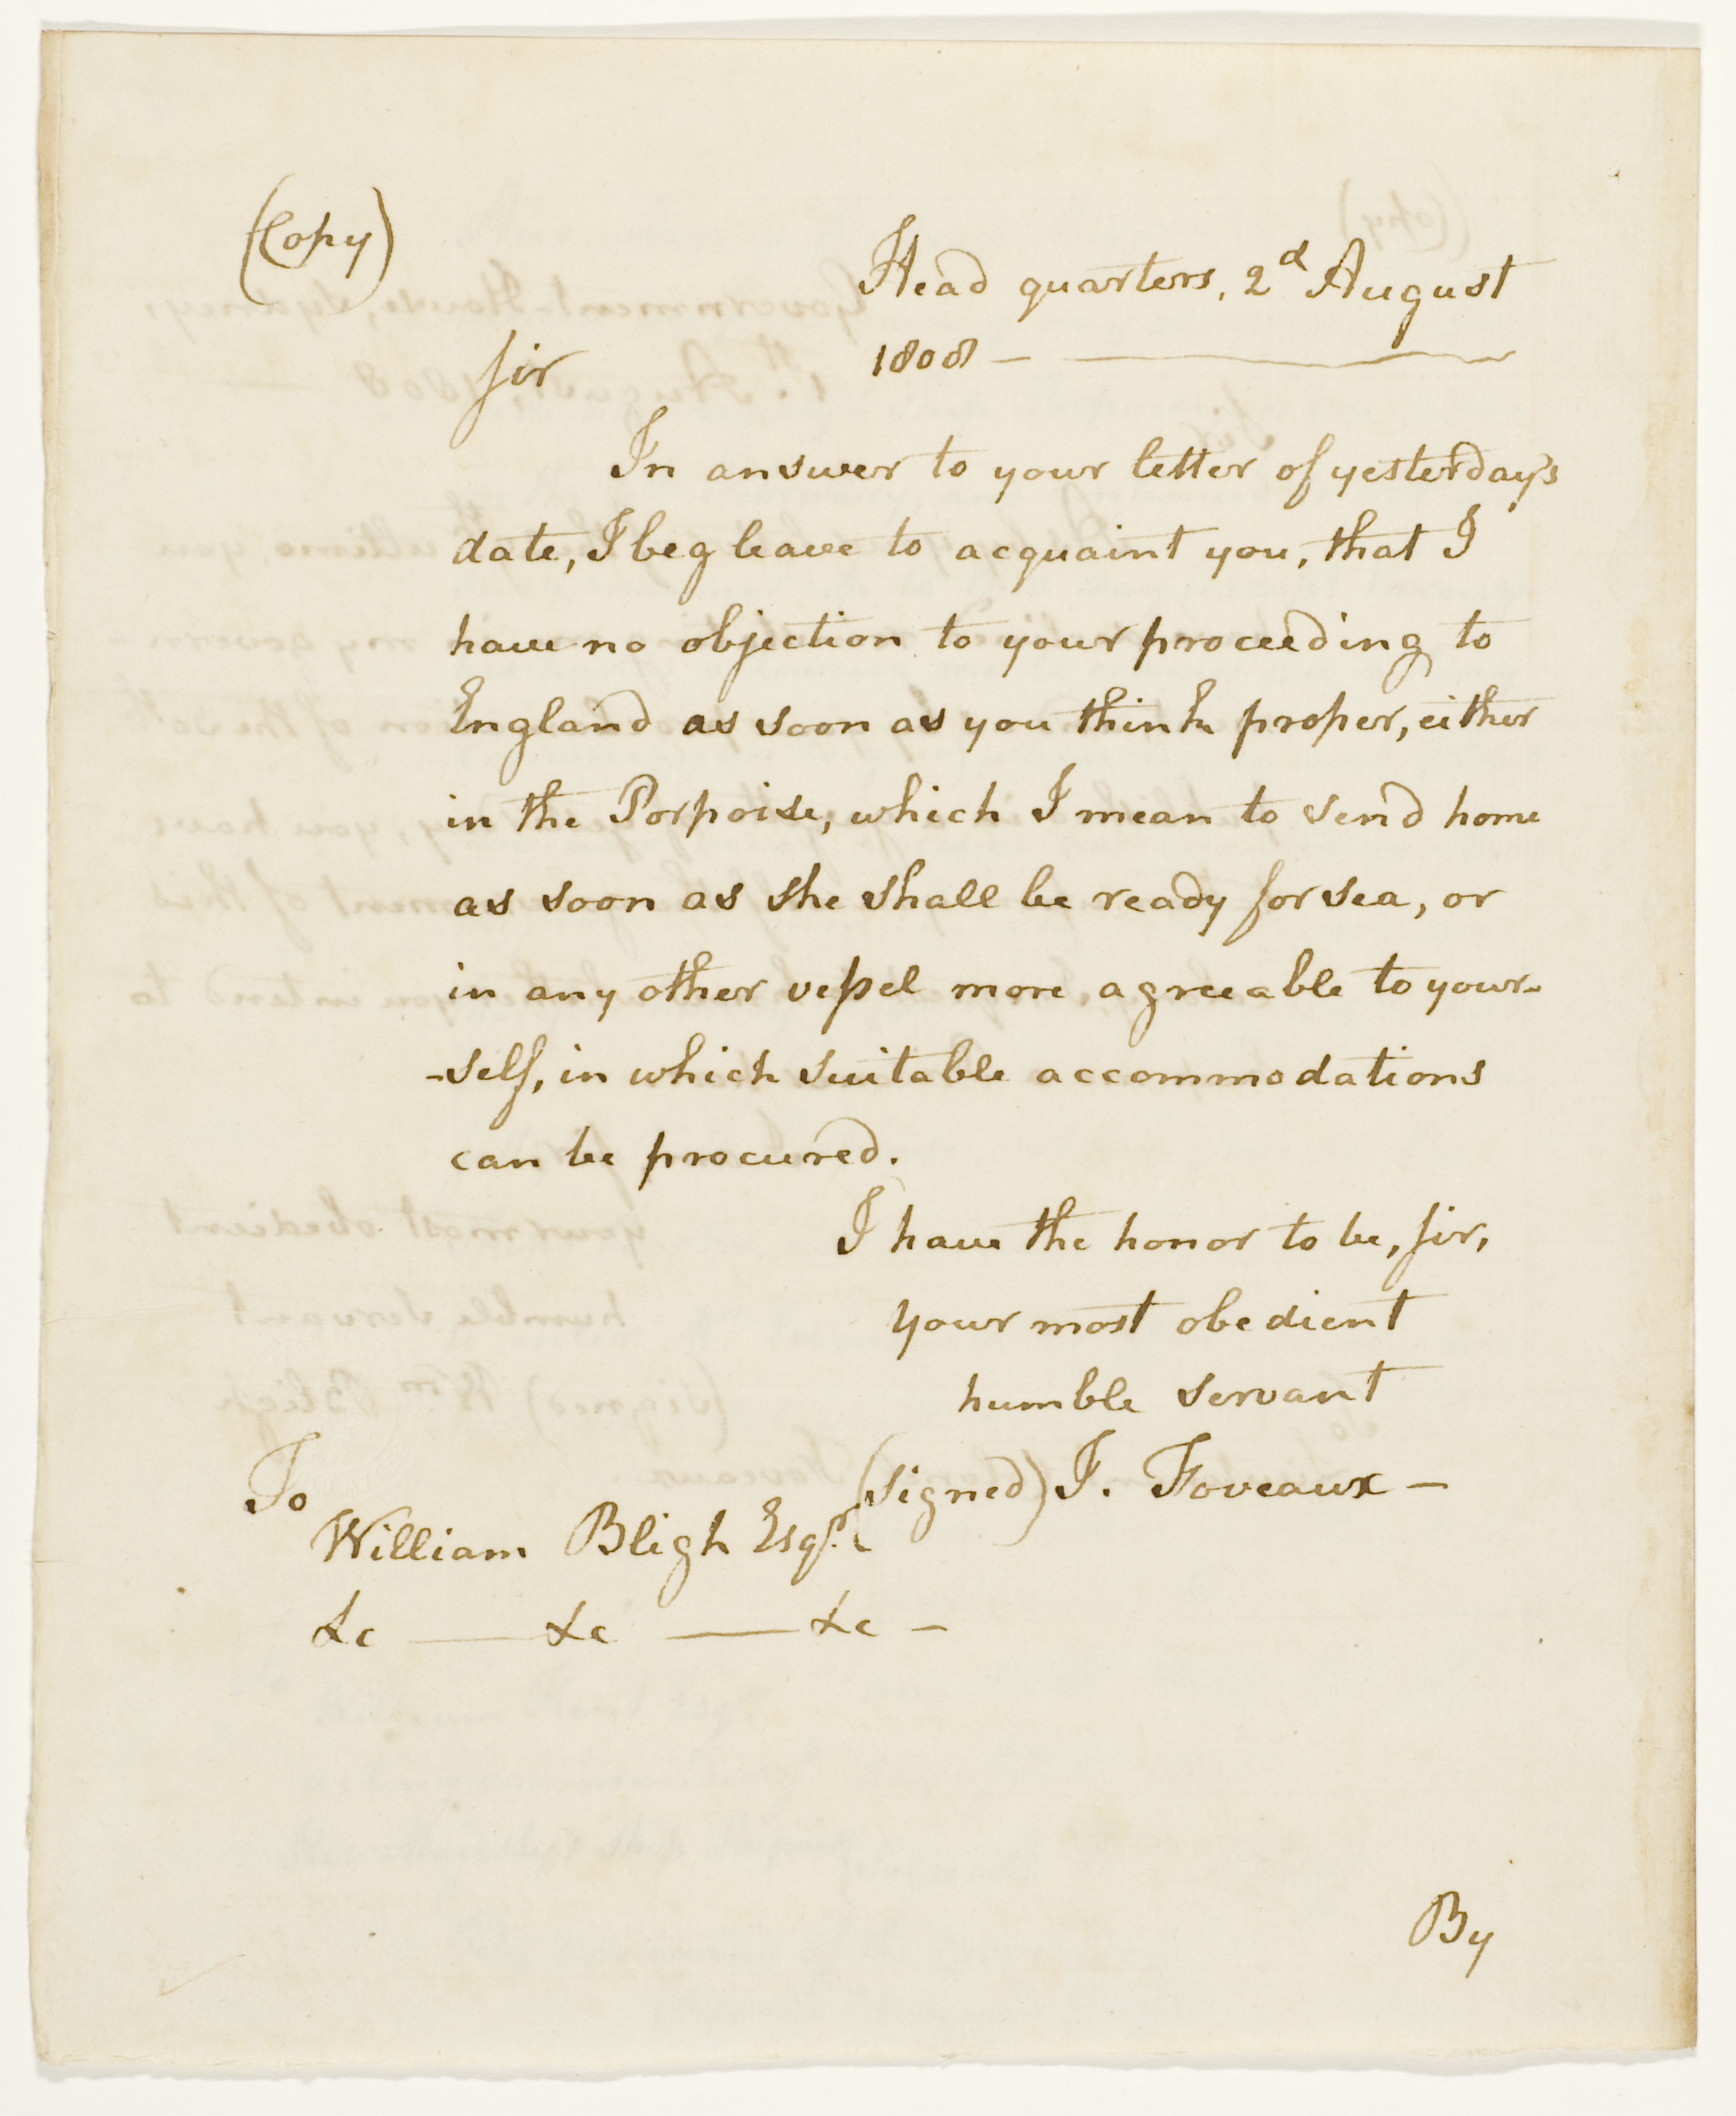 (Copy)
Head quarters, 2d August
1808 —
Sir
In answer to your letter of yesterday's
date, I beg leave to acquaint you, that I
have no objection to your proceeding to
England as soon as you think proper, either
in the Porpoise, which I mean to send home
as soon as she shall be ready for sea, or
in any other vessel more, agreeable to your-
-self, in which suitable accommodations
can be procured.
I have the honor to be, Sir,
your most obedient
humble servant
(signed) J. Foveaux —
To
William Bligh Esqr.
&c — &c — &c —
By